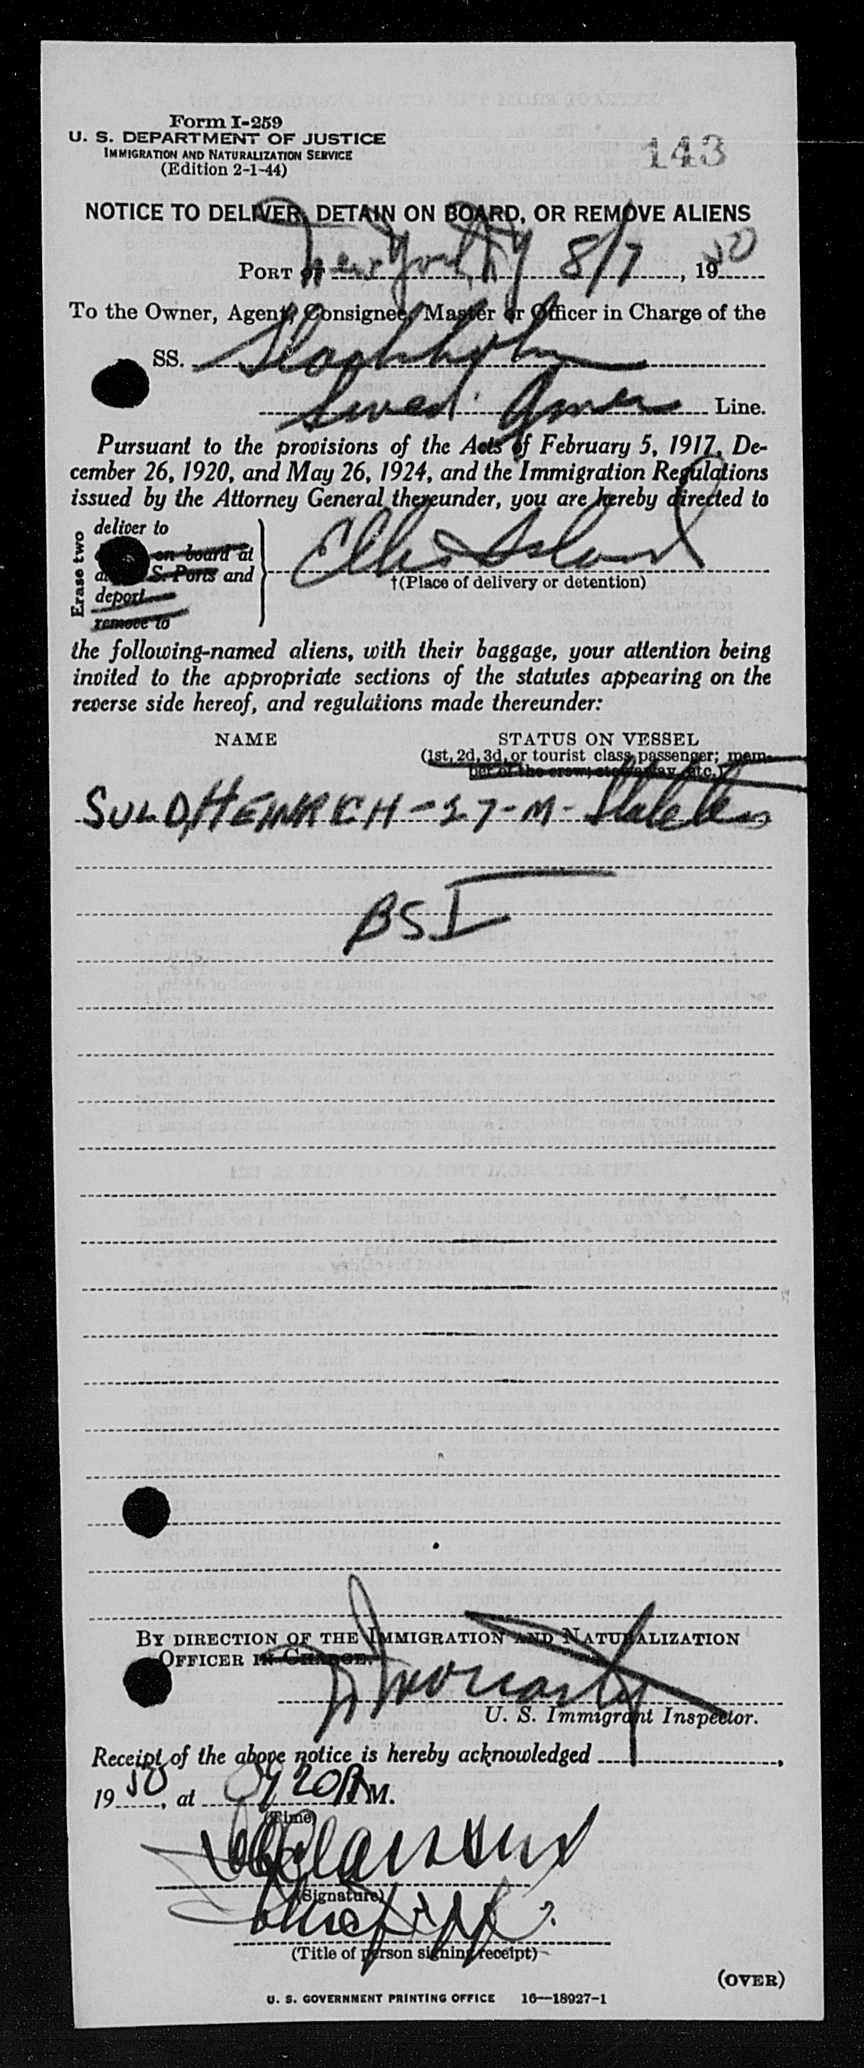 Form I-259
U. S. DEPARTMENT OF JUSTICE
IMMIGRATION AND NATURALIZATION SERVICE
(Edition 2-1-44)
143
NOTICE TO DELIVER, DETAIN ON BOARD, OR REMOVE ALIENS
PORT of New York, NY 8/7, 1950
To the Owner, Agent, Consignee, Master or Officer in Charge of the
SS. Stockholm
Swed. Amer Line.
Pursuant to the provisions of the Acts of February 5, 1917, De-
cember 26, 1920, and May 26, 1924, and the Immigration Regulations
issued by the Attorney General thereunder, you are hereby directed to
Erase two
deliver to
on board at
S. Ports and
deport
remove to
Ellis Island
†(Place of delivery or detention)
the following-named aliens, with their baggage, your attention being
invited to the appropriate sections of the statutes appearing on the
reverse side hereof, and regulations made thereunder:
NAME
STATUS ON VESSEL
(1st, 2d, 3d, or tourist class passenger; mem-
ber of the crew; stowaway, etc.)
SULD, HEINRICH - 27 - M - Stateless
BSI
BY DIRECTION OF THE IMMIGRATION AND NATURALIZATION
OFFICER IN CHARGE.
U. S. Immigrant Inspector.
Receipt of the above notice is hereby acknowledged
1950, at 20 P M.
(Time)
(Signature)
(Title of person signing receipt)
(OVER)
U. S. GOVERNMENT PRINTING OFFICE 16—18927-1